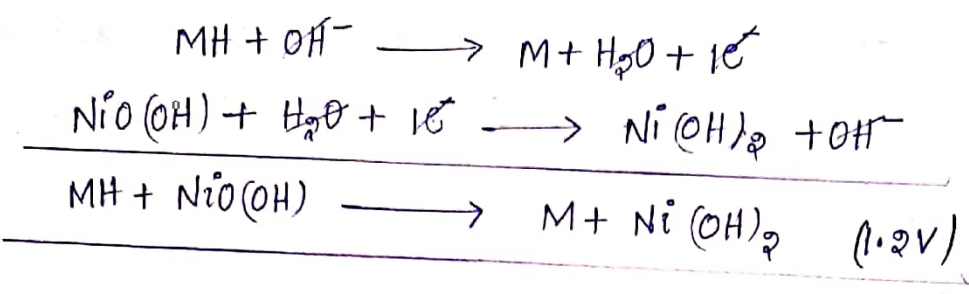 MH + OH⁻ ⟶ M + H₂O + 1e⁻
NiO(OH) + H₂O + 1e⁻ ⟶ Ni(OH)₂ + OH⁻
MH + NiO(OH) ⟶ M + Ni(OH)₂ (1.2V)